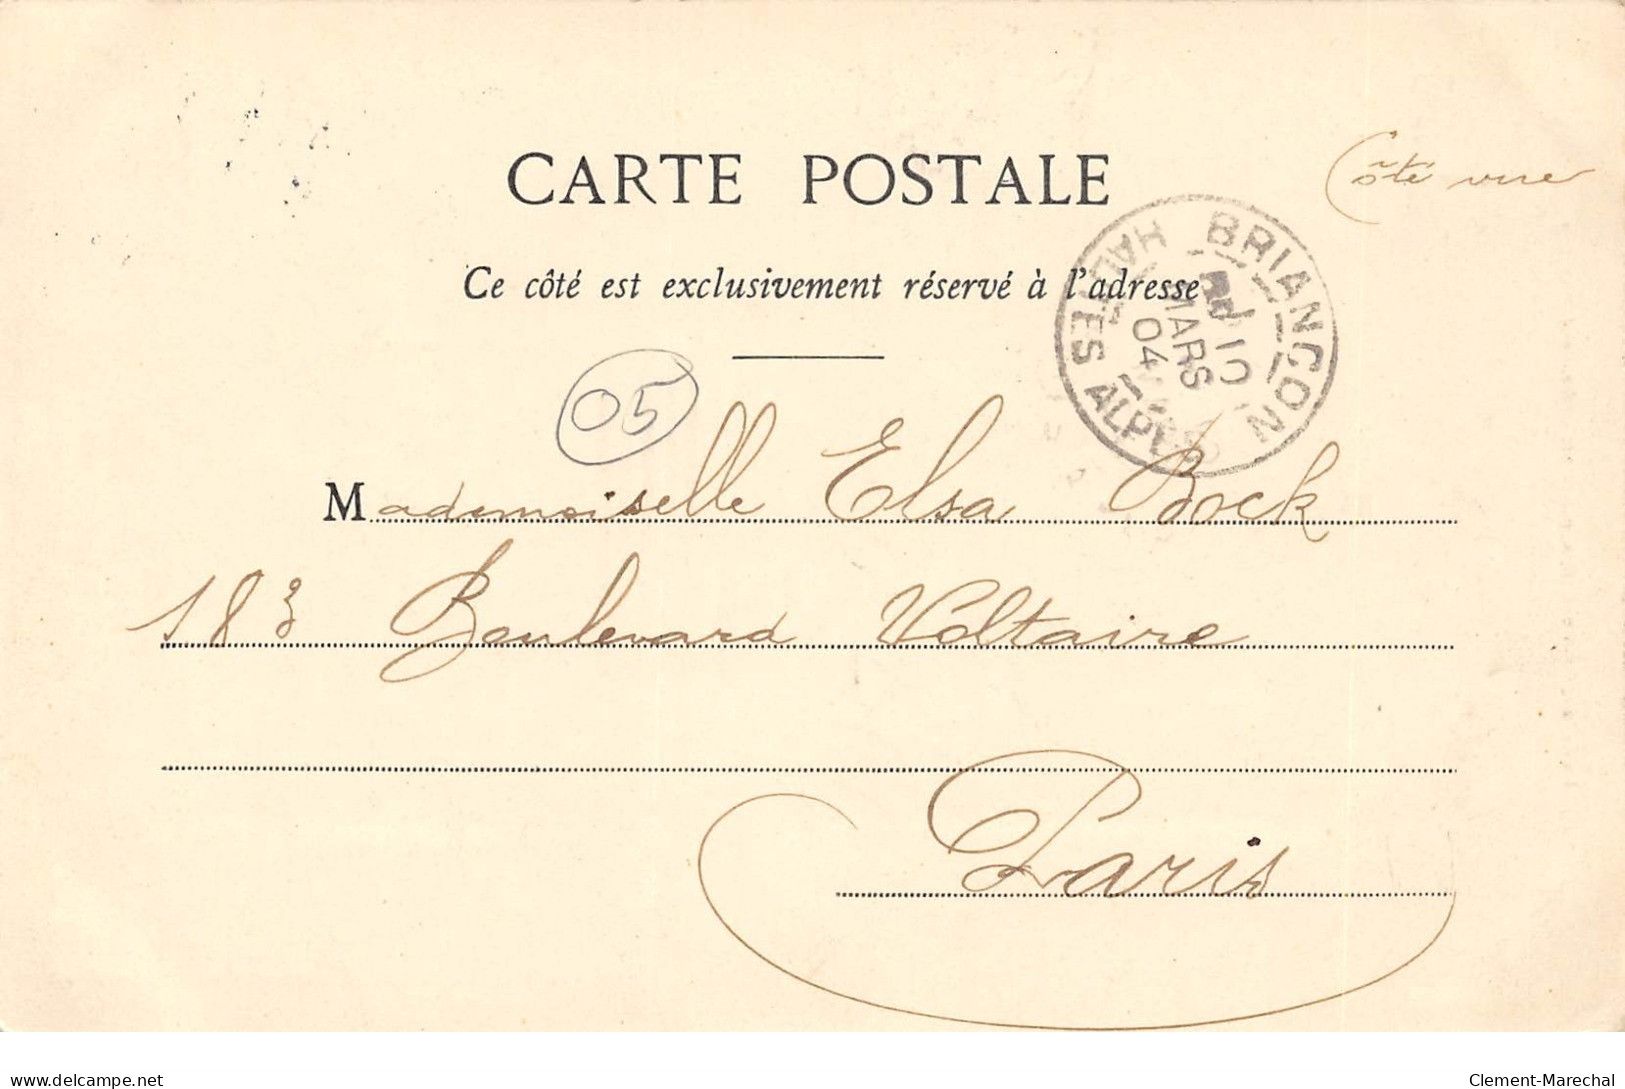 CARTE POSTALE
Côté vue
Ce côté est exclusivement réservé à l'adresse
BRIANÇON
HAUTES ALPES
10
MARS
04
05
Mademoiselle Elsa Bock
183 Boulevard Voltaire
Paris
delcampe.net
Clement-Marechal